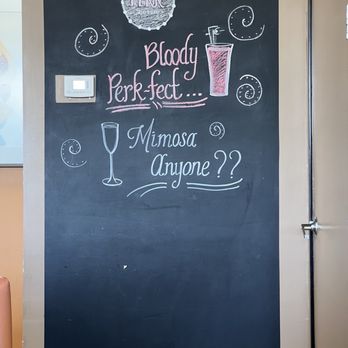 Bloody
Perk-fect...
Mimosa
Anyone??